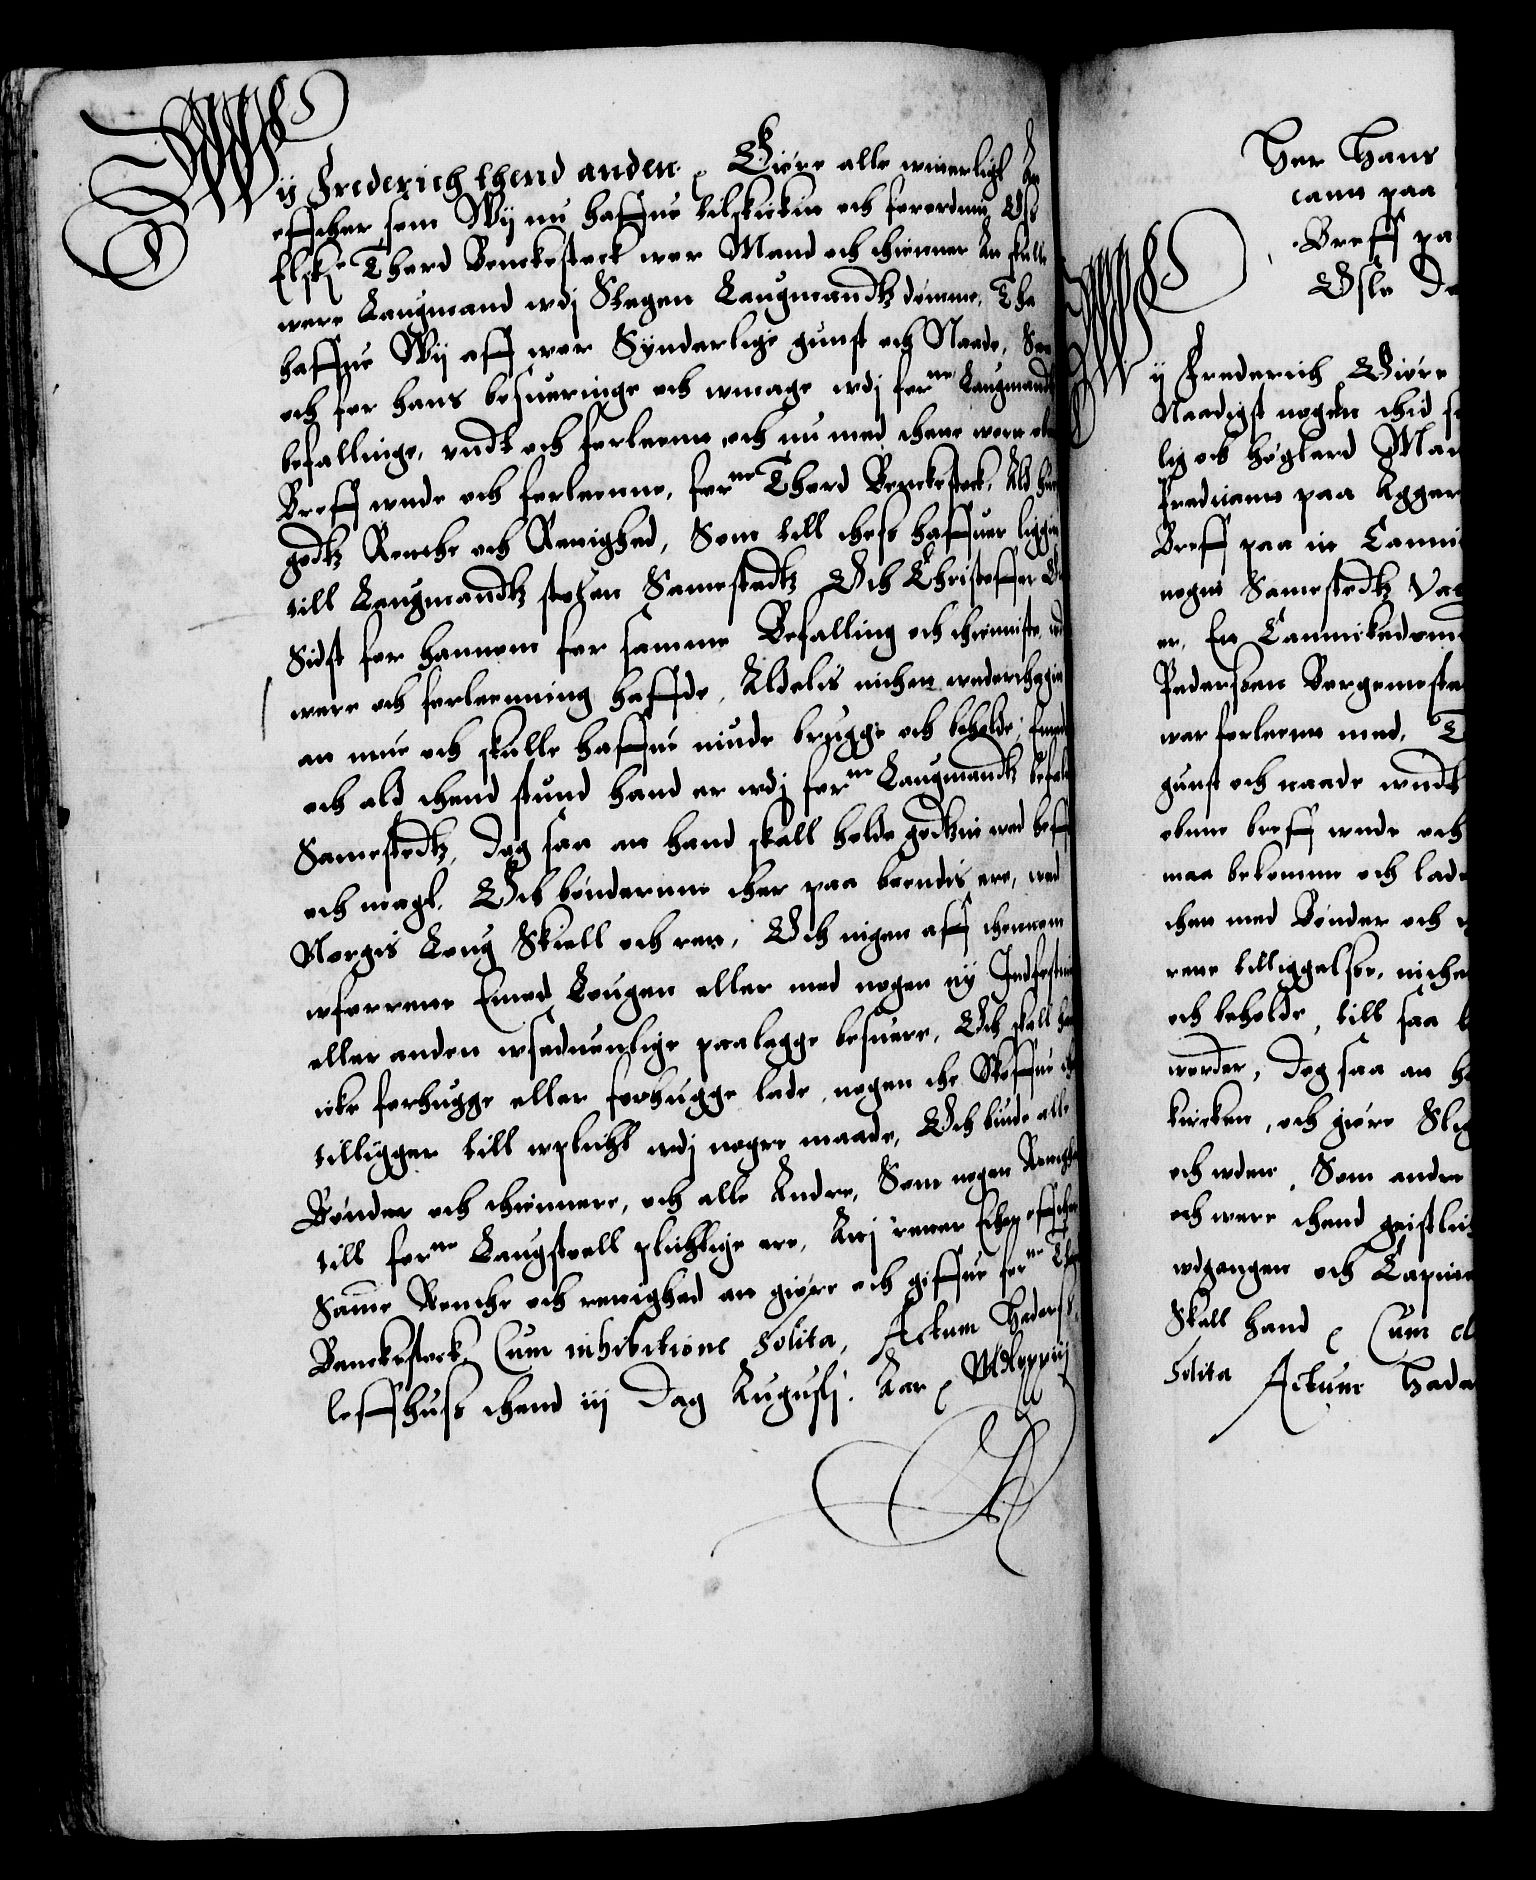 Wij Frederich thend anden Giøre alle witterligt At
effther som Wij nu haffue tilskicket och forordnit Oss
Elskl Thord Benckestock wor Mand och thienner At skulle
were Laugmand wdj Skeen Laugmandtz dømme, Tha
haffue Wij aff wor Synderlige gunst och Naade, Saa
och for hans besueringe och wmage wdj forne Laugmandtz
befallinge, undt och forleent och nu med thette wort obne
Breff unde och forleenne, forne Thord Benckestock, Ald huis
godtz Renthe och Rettighed, Som till thess haffuer liggit
till Laugmandtz stolen Samestedtz Och Christoffer
Sidst for hannem for samme Befalling och thienniste udj
were och forleenning haffde, Aldelis inthet undertagit
at mue och skulle haffue niude brugge och beholde, Emeden
och ald thend stund hand er udj forne Laugmandtz befaling
Samestedtz, Dog saa at hand skall holde godtzit wed heff
och magt. Och bønderne ther paa boendis ere, wed
Norgis Loug Skiell och ret, Och ingen aff thennem
wforrette Emod Lougen eller med nogen ny Indfestning
eller anden wseduenlige paalegge besuere, Och skall hand
icke forhugge eller forhugge lade, nogen the Skoffue ther
tilligger till wplicht wdj nogre maade, Och biude alle
Bønder och thiennere, och alle Andre, Som nogen Rettighed
till forne Laugstoell plichtige ere, Att i retter Eder effther
Samme Renthe och rettighed at giøre och giffue forne Thord
Benckestock, Cum inhibitione Solita, Actum Haders
leffhuss thend iij Dag Augustj. Aar MDlxxiij

Her Hans
cann paa
Breff pa
Oslo Do
Wij Frederich Giøre
Naadigst nogen thid s
lig och høglerd Man
Predicant paa Agger
Breff paa it Canni
nogit Samestedtz Vac
er, En Cannickedom
Pedersøen Borgemeste
war forleent med, T
gunst och naade undt
obne breff unde och
maa bekomme och lade
then med Bønder och
rette tilliggelse, inthet
och beholde, till saa l
worder, Dog saa at h
kircken, och giøre Slig
och uden, Som andre
och were thend geistlig
udgangen och Capitt
Skall hand Cum cl
Solita Actum Hader